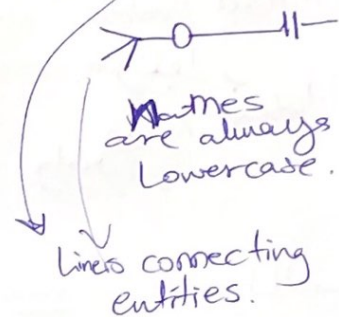 Names
are always
Lowercase.
Lines connecting
entities.